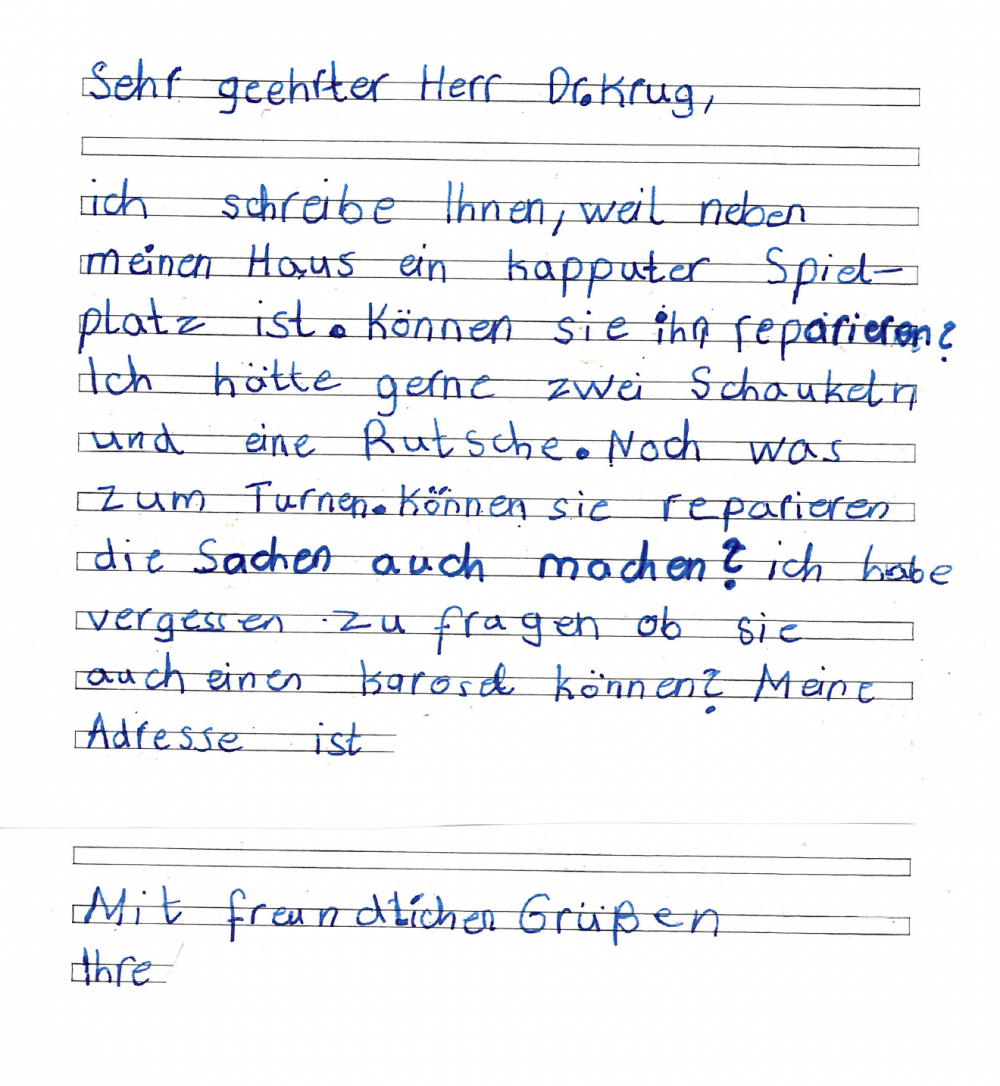 Sehr geehrter Herr Dr. Krug,
ich schreibe Ihnen, weil neben
meinen Haus ein kapputer Spiel-
platz ist. Können sie ihn reparieren?
Ich hätte gerne zwei Schaukeln
und eine Rutsche. Noch was
zum Turnen. Können sie reparieren
die Sachen auch machen? ich habe
vergessen zu fragen ob sie
auch einen können? Meine
Adresse ist
Mit freundlichen Grüßen
Ihre